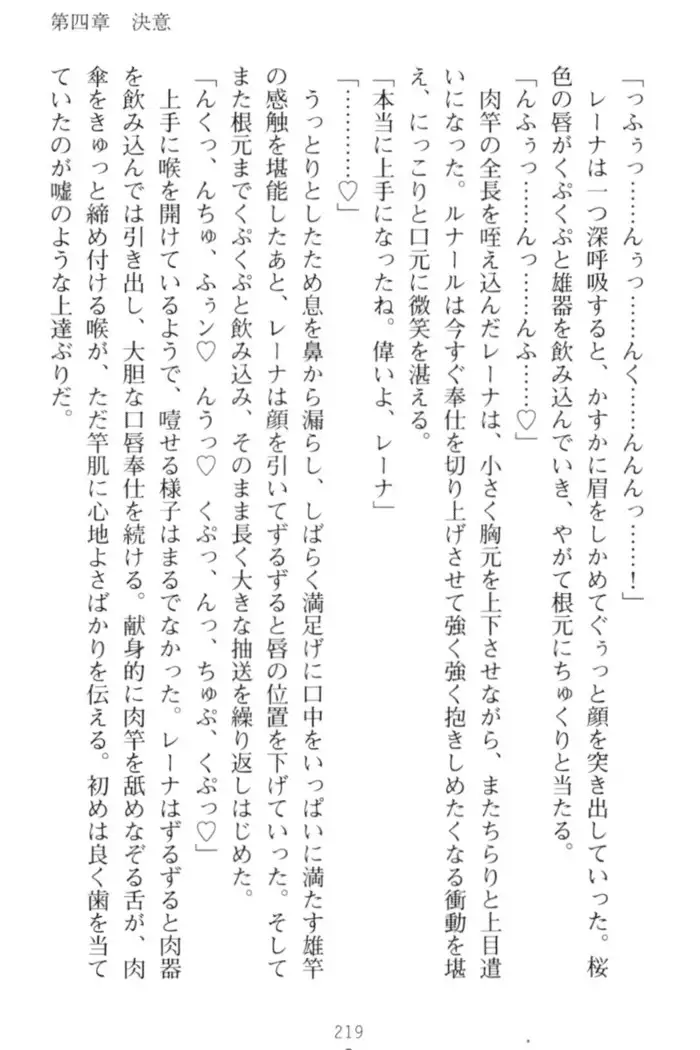 第四章　決意
「っふぅっ……んぅっ……んく……んんんっ……！」
　レーナは一つ深呼吸すると、かすかに眉をしかめてぐぅっと顔を突き出していった。桜
色の唇がくぷくぷと雄器を飲み込んでいき、やがて根元にちゅくりと当たる。
「んふぅっ……んっ……んふ……♡」
　肉竿の全長を咥え込んだレーナは、小さく胸元を上下させながら、またちらりと上目遣
いになった。ルナールは今すぐ奉仕を切り上げさせて強く強く抱きしめたくなる衝動を堪
え、にっこりと口元に微笑を湛える。
「本当に上手になったね。偉いよ、レーナ」
「…………♡」
　うっとりとしたため息を鼻から漏らし、しばらく満足げに口中をいっぱいに満たす雄竿
の感触を堪能したあと、レーナは顔を引いてずるずると唇の位置を下げていった。そして
また根元までくぷくぷと飲み込み、そのまま長く大きな抽送を繰り返しはじめた。
「んくっ、んちゅ、ふぅン♡　んうっ♡　くぷっ、んっ、ちゅぷ、くぷっ♡」
　上手に喉を開けているようで、噎せる様子はまるでなかった。レーナはずるずると肉器
を飲み込んでは引き出し、大胆な口唇奉仕を続ける。献身的に肉竿を舐めなぞる舌が、肉
傘をきゅっと締め付ける喉が、ただ竿肌に心地よさばかりを伝える。初めは良く歯を当て
ていたのが嘘のような上達ぶりだ。
219